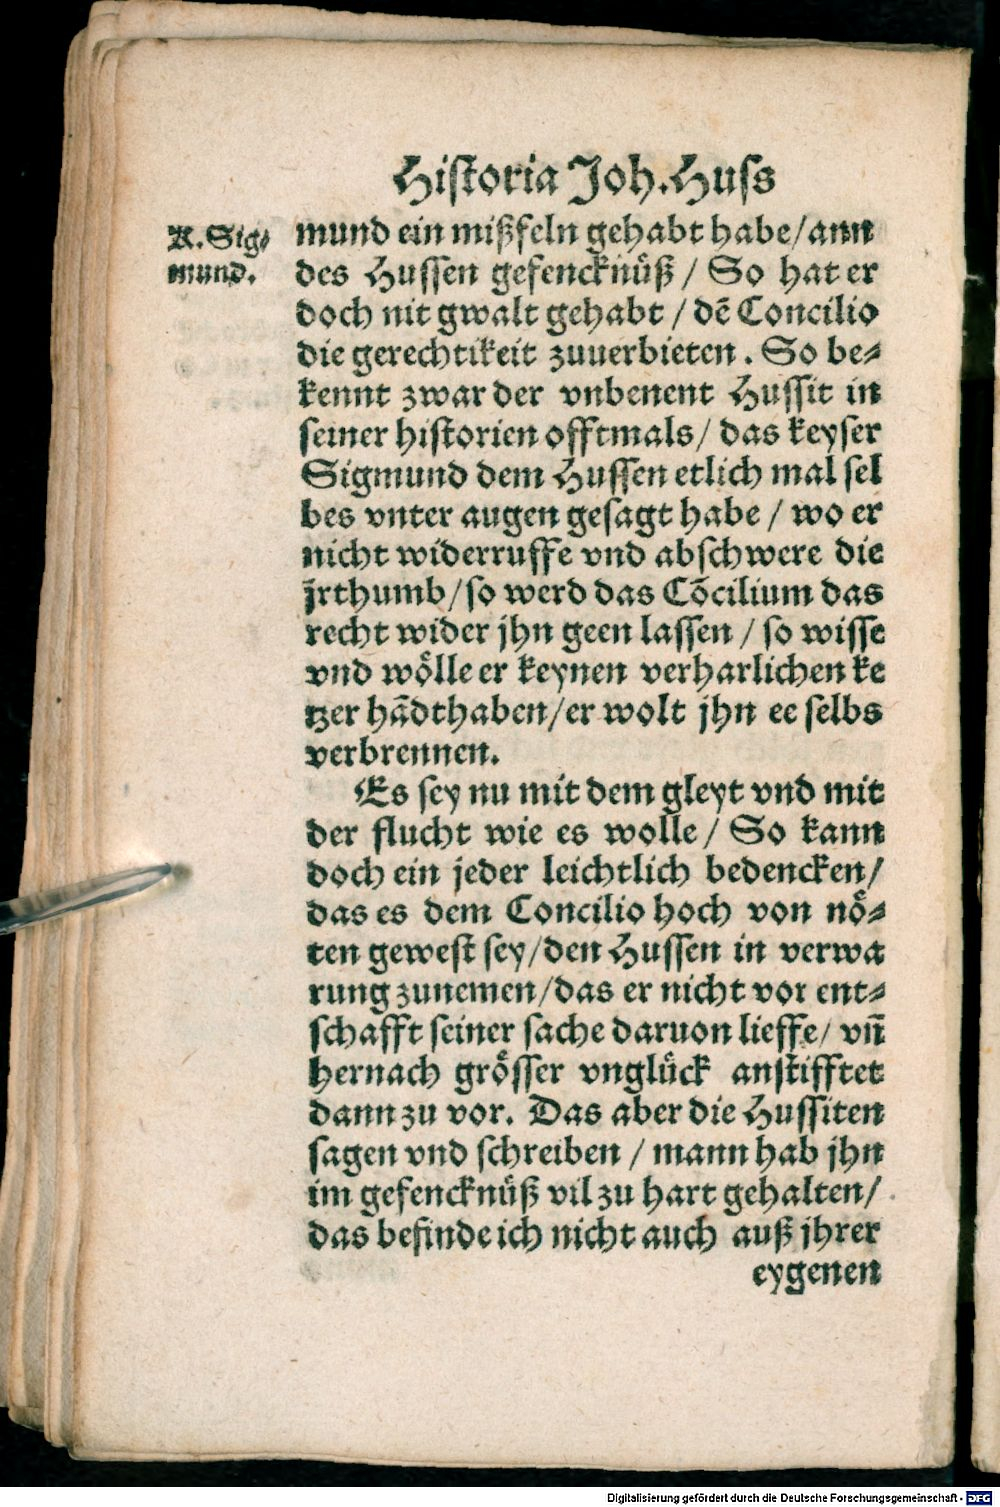 Historia Joh. Huss
K. Sig⸗
mund.
mund ein mißfeln gehabt habe / ann
des Hussen gefencknüß / So hat er
doch nit gwalt gehabt / dē Concilio
die gerechtikeit zuuerbieten. So be⸗
kennt zwar der vnbenent Hussit in
seiner historien offtmals / das keyser
Sigmund dem Hussen etlich mal sel
bes vnter augen gesagt habe / wo er
nicht widerruffe vnd abschwere die
jrthumb / so werd das Cōcilium das
recht wider jhn geen lassen / so wisse
vnd wölle er keynen verharlichen ke
tzer hādthaben / er wolt jhn ee selbs
verbrennen.
Es sey nu mit dem gleyt vnd mit
der flucht wie es wolle / So kann
doch ein jeder leichtlich bedencken /
das es dem Concilio hoch von nö⸗
ten gewest sey / den Hussen in verwa
rung zunemen / das er nicht vor ent⸗
schafft seiner sache daruon lieffe / vn̄
hernach grösser vnglück anstifftet
dann zu vor. Das aber die Hussiten
sagen vnd schreiben / mann hab jhn
im gefencknüß vil zu hart gehalten /
das befinde ich nicht auch auß jhrer
eygenen
Digitalisierung gefördert durch die Deutsche Forschungsgemeinschaft - DFG